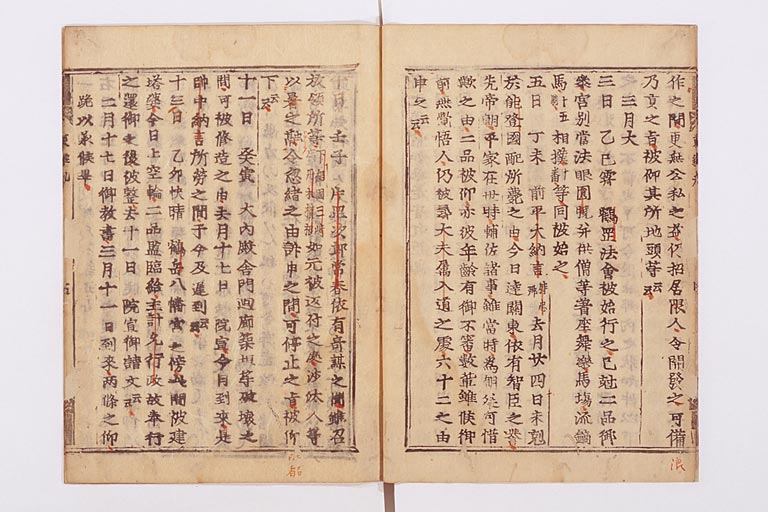 作之間更無公私之益仍招居浪人令開發之可備
乃貢之旨被仰其所地頭等云云
三月大
三日 乙巳霽 鶴岳法會被始行之已尅二品御
參宮別當法眼圓暁并供僧等着座舞樂馬塲流鏑
馬計五相撲計等同被始之
五日 丁未 前平大納言時忠卿去月廿四日未尅
於能登國配所薨之由今日達關東依有智臣之譽
先帝朝平家在世時輔佐諸事雖當時爲朝廷可惜
歟之由二品被仰亦彼年齡有御不審數輩雖候御
前無覺悟人仍被尋大夫属入道之處六十二之由
申之云云
十日 壬子 片岡次郎常春依有奇謀之聞雖召
放領所等下總國三崎如元被返付之處沙汰人等
以暑之無令忽緒之由訴申之間可停止之旨被仰
下云云
十一日 癸寅 大内殿舍門西廊築垣等破壞之
間可被修造之由去月十七日 院宣今日到來是
帥中納言所勞之間于今及遲到云云
十三日 乙卯快晴 鶴岳八幡宮之傍此間被建
塔婆今日上空輪二品監臨給主計允行政故奉行
之還御之後被整去十一日 院宣御請文云云
右二月十七日御教書三月十一日到來兩條之仰
跪以承候畢